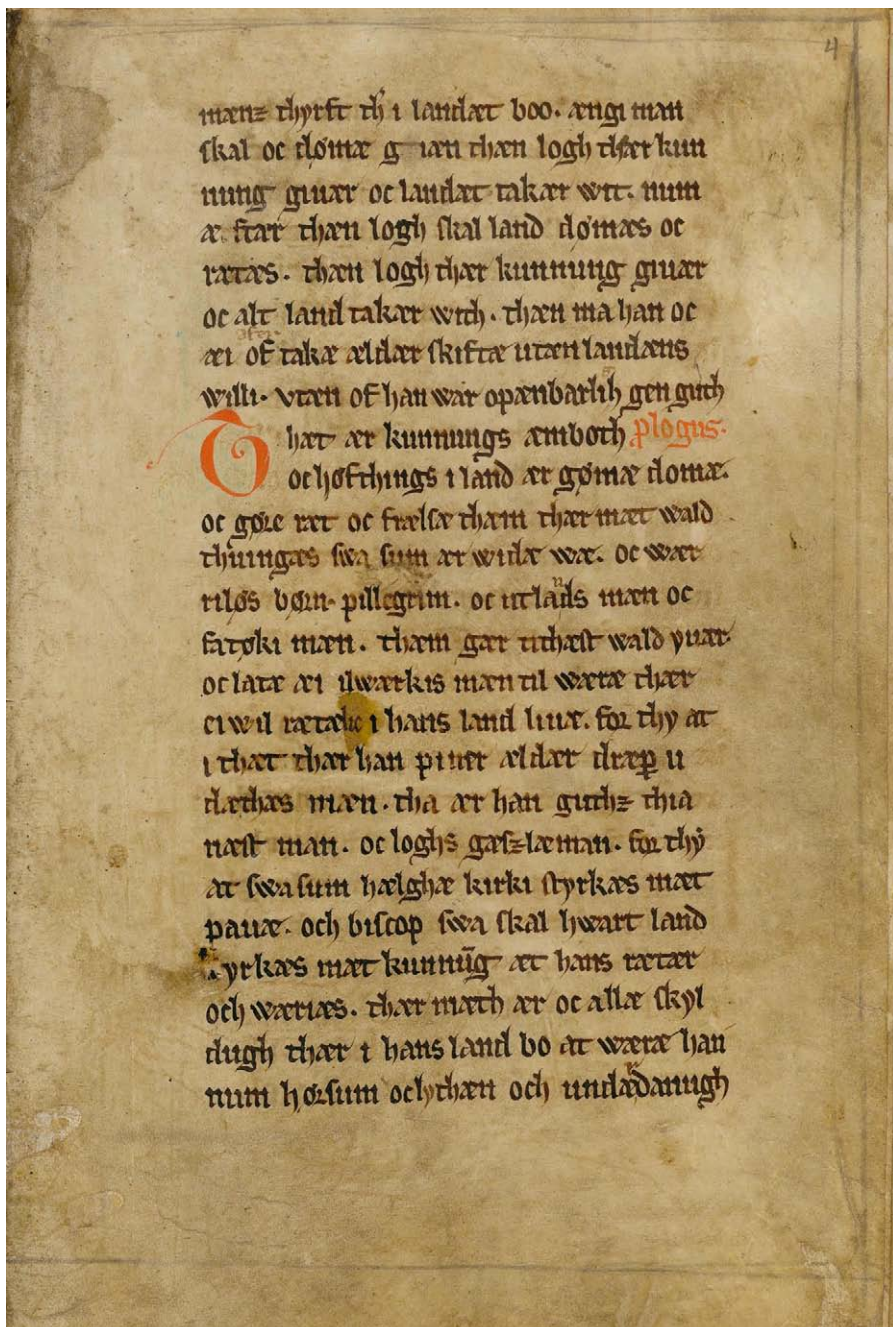 4
mænz thyrft th̄ i landæt boo. ængi man
skal oc dømæ g iæn thæn logh thær kun
nung giuær oc landæt takær wit. num
æ ftær thæn logh skal land dømæs oc
rætæs. thæn logh thær kunnung giuær
oc alt land takær with. thæn ma han oc
æi of takæ ældær skiftæ utæn landæns
willi. vtæn of han war opænbarlih gen guth
That ær kunnungs æmboth plogus.
oc høfthings i land ær gømæ domæ.
oc gøræ ræt oc frælsæ them thær mæt wald
thuingæs swa sum ær widæ wæ. oc wær
riløs børn. pillegrim. oc utlænds mæn oc
fatøki mæn. thæm gær tithæst wald yuær.
oc latæ æi ilwærkis mæn til wæræ thær
ei wil rætæs i hans land liuæ. for thy at
i thæt thær han pinær ældær dræpær u
dæthæs mæn. tha ær han guthz thia
næst man. oc loghs gæszlæman. for thy
at swa sum hælghæ kirki styrkæs mæt
pauæ. och biscop swa skal hwart land
styrkæs mæt kunnūg æt hans rætær
och wæriæs. thær mæth ær oc allæ skyl
dugh thær i hans land bo at wæræ han
num hørsum oc lythæn och undædanugh